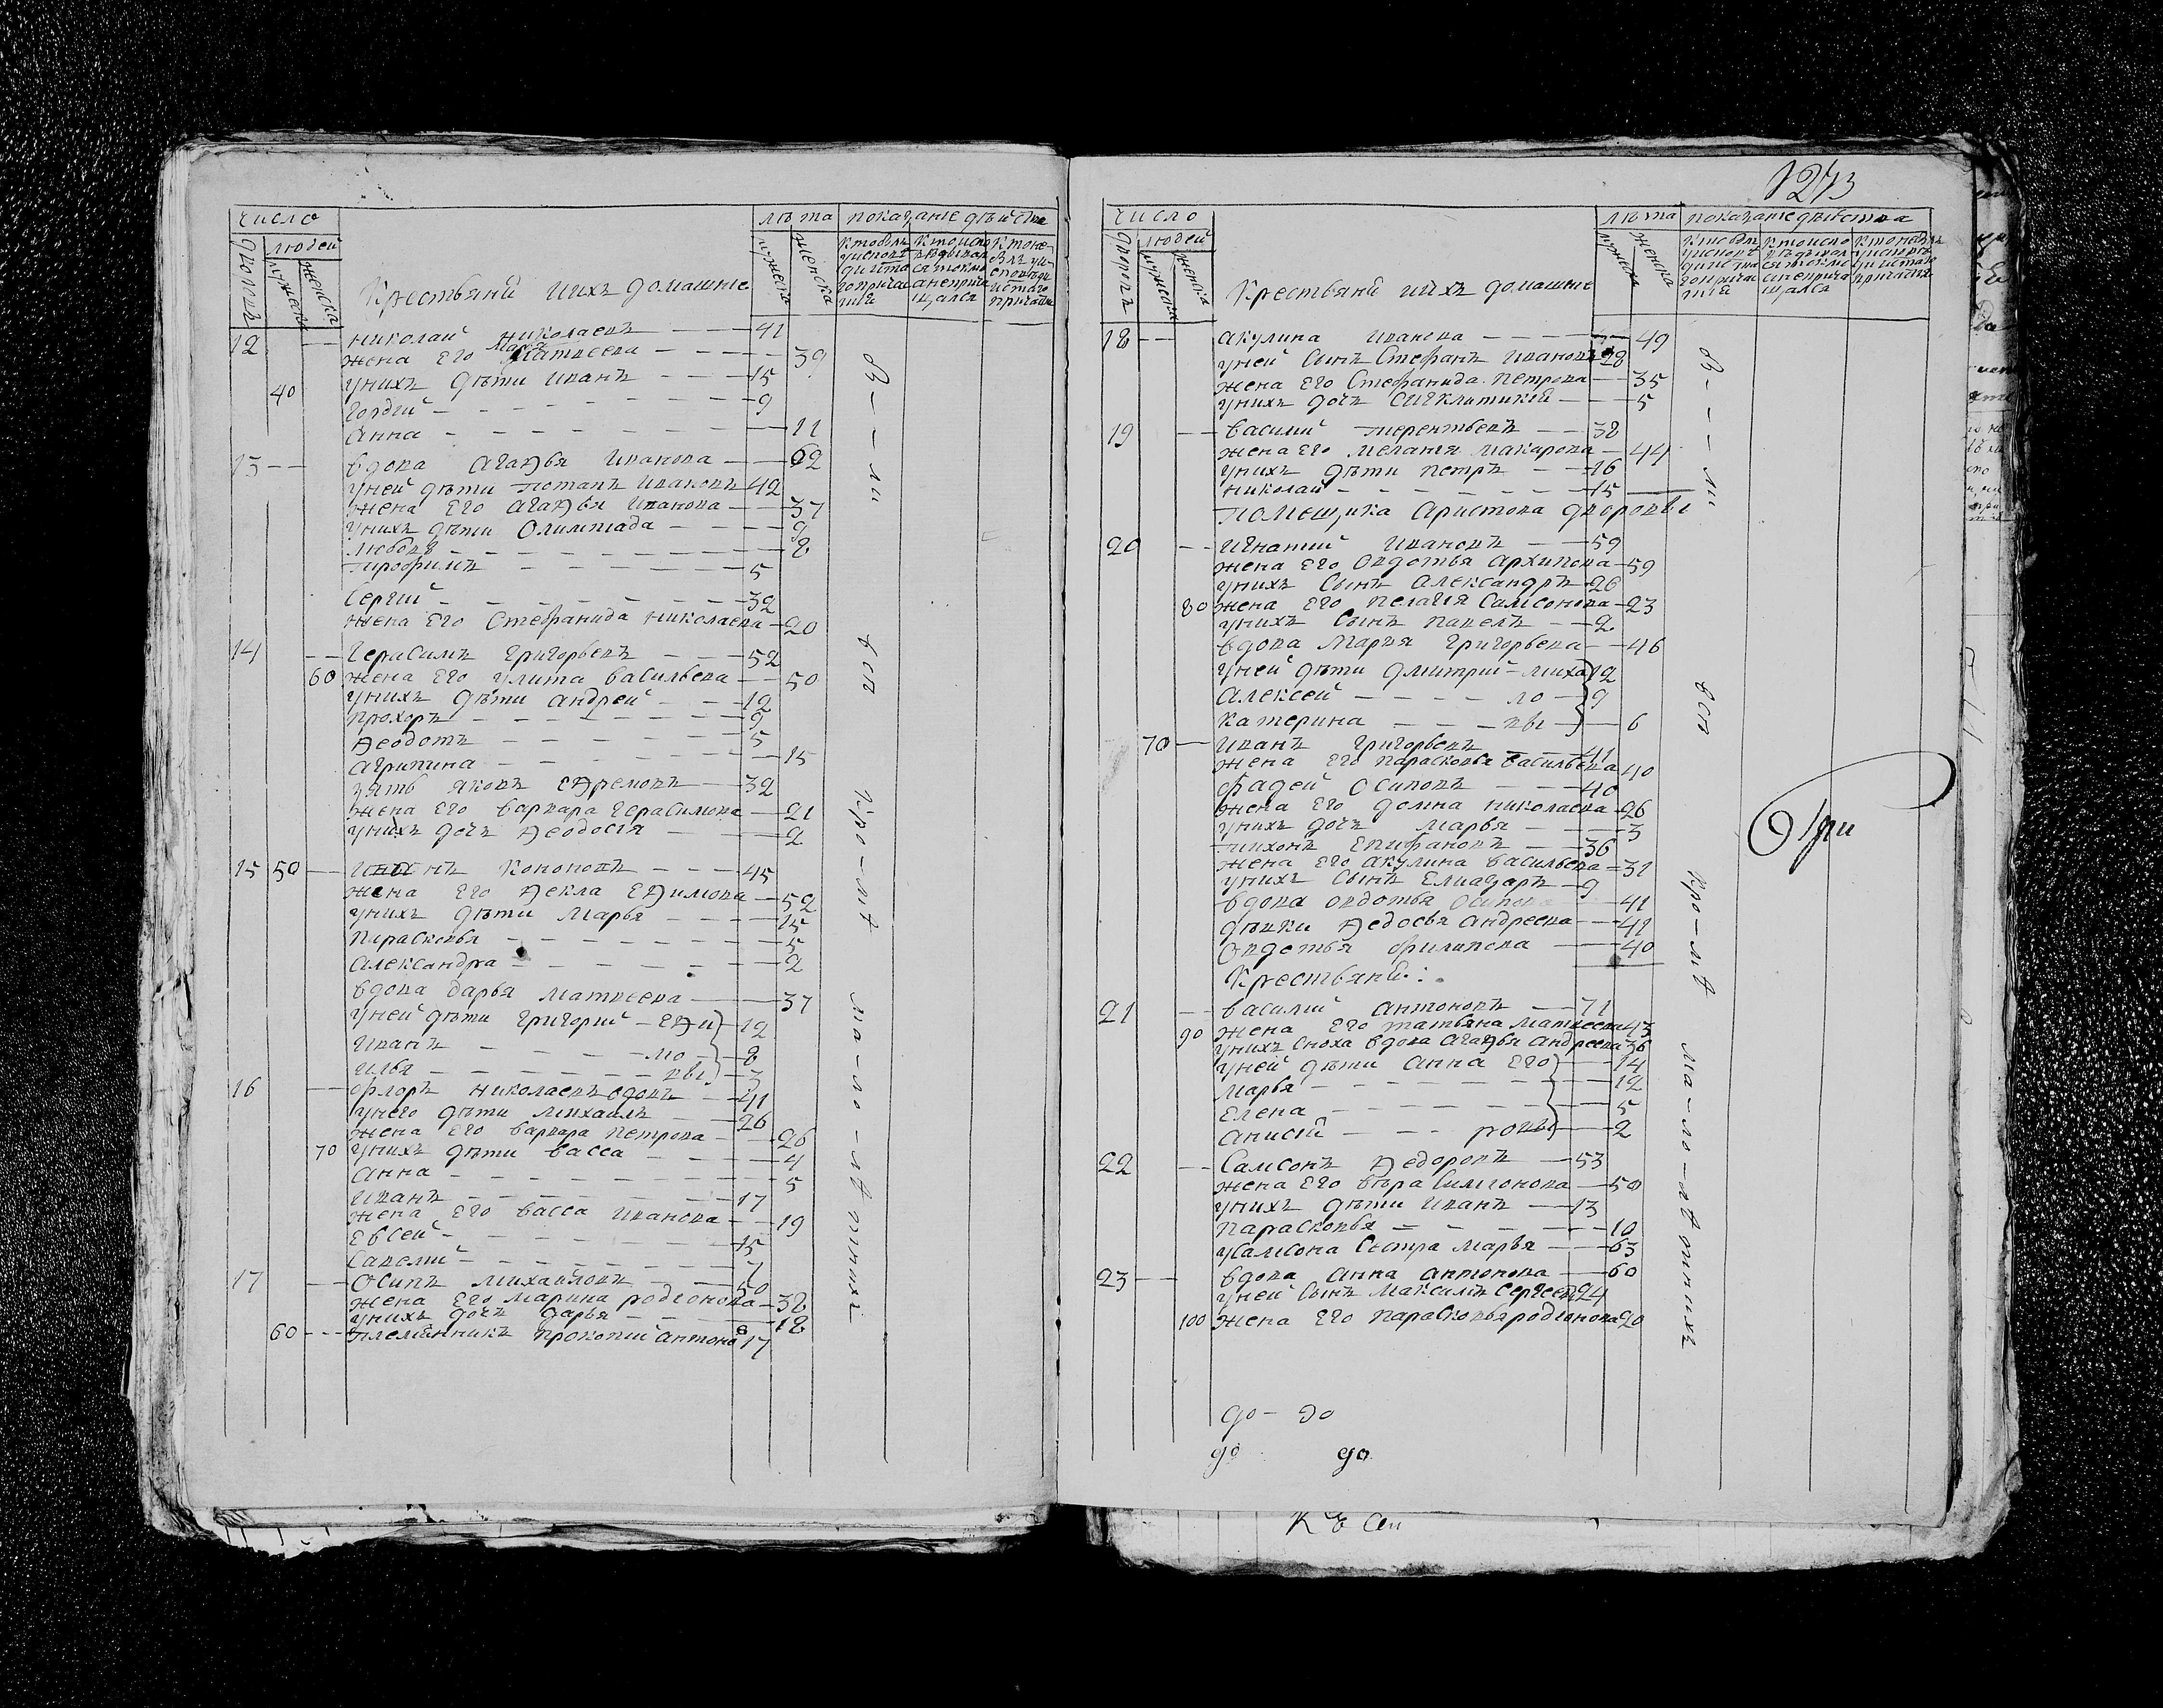 число
лѣта показание дѣйства
дворовъ
людей
мужеска
женска
мужеска
женска
Крестьяни ихъ домашние
12 николай николаевъ 41
жена его марья матвеева 39
40 у нихъ дѣти иванъ 15
гордѣй 9
анна 11
13 вдова агаѳья иванова 62
у ней дѣти потапъ ивановъ 42
жена его агаѳья иванова 37
у нихъ дѣти олимпиада 9
любовя 8
трофимъ 5
сергий 32
жена его стефанида николаева 20
14 герасимъ григорьевъ 52
60 жена его улита васильева 50
у нихъ дѣти андрей 12
прохоръ 9
ѳеодотъ 5
агрипина 15
зять яковъ еѳремовъ 32
жена его варвара герасимова 21
у нихъ дочь ѳеодосия 2
15 50 кононовъ 45
жена его ѳекла еѳимова 52
у нихъ дѣти марья 15
парасковья 5
александра 2
вдова дарья матвеева 37
у ней дѣти григорий еѳи 12
иванъ мо 8
илья вы 3
16 флоръ николаевъ вдовъ 41
у него дѣти михаилъ 26
жена его варвара петрова 26
70 у нихъ дѣти васса 4
анна 5
иванъ 17
жена его васса иванова 19
евсей 15
савелий 7
17 осипъ михайловъ 50
жена его марина родионова 38
у нихъ дочь дарья 18
60 племянникъ прокопий антоновъ 17
в ли
вси
про лѣ
ма ло лѣтнихъ
1243
число
лѣта показание дѣйства
дворовъ
людей
мужеска
женска
мужеска
женска
Крестьяни ихъ домашние
18 акулина иванова 49
у ней сынъ стефанъ ивановъ 28
жена его стефанида петрова 35
у нихъ дочь сигклитикия 5
19 василий терентьевъ 38
жена его мелания макарова 44
у нихъ дѣти петръ 16
николай 15
помещика аристова дворовы
20 игнатий ивановъ 59
жена его овдотья архипова 59
у нихъ сынъ александръ 26
80 жена его пелагия самсонова 23
у нихъ сынъ павелъ 2
вдова мария григорьева 46
у ней дѣти дмитрий миха 12
алексей ло 9
катерина вы 6
70 иванъ григорьевъ 41
жена его парасковья васильева 40
фадей осиповъ 40
жена его домна николаева 26
у нихъ дочь марья 3
тихонъ епифановъ 36
жена его акулина васильева 31
у нихъ сынъ елиазаръ 9
вдова овдотья осипова 41
дѣвки ѳедосья андреева 41
овдотья филипова 40
Крестьяни:
21 василий антоновъ 71
90 жена его татьяна матвеева 43
у нихъ сноха вдова агаѳья андреева 36
у ней дѣти анна его 14
марья 12
елена 5
анисия ровы 2
22 самсонъ ѳедоровъ 53
жена его вѣра симионова 50
у нихъ дѣти иванъ 13
парасковья 10
у самсона сестра марья 63
23 вдова анна антонова 60
у ней сынъ максимъ сергеевъ 24
100 жена его парасковья родионова 20
в ли
вси
про лѣ
ма ло лѣтнихъ
при
до до
до до